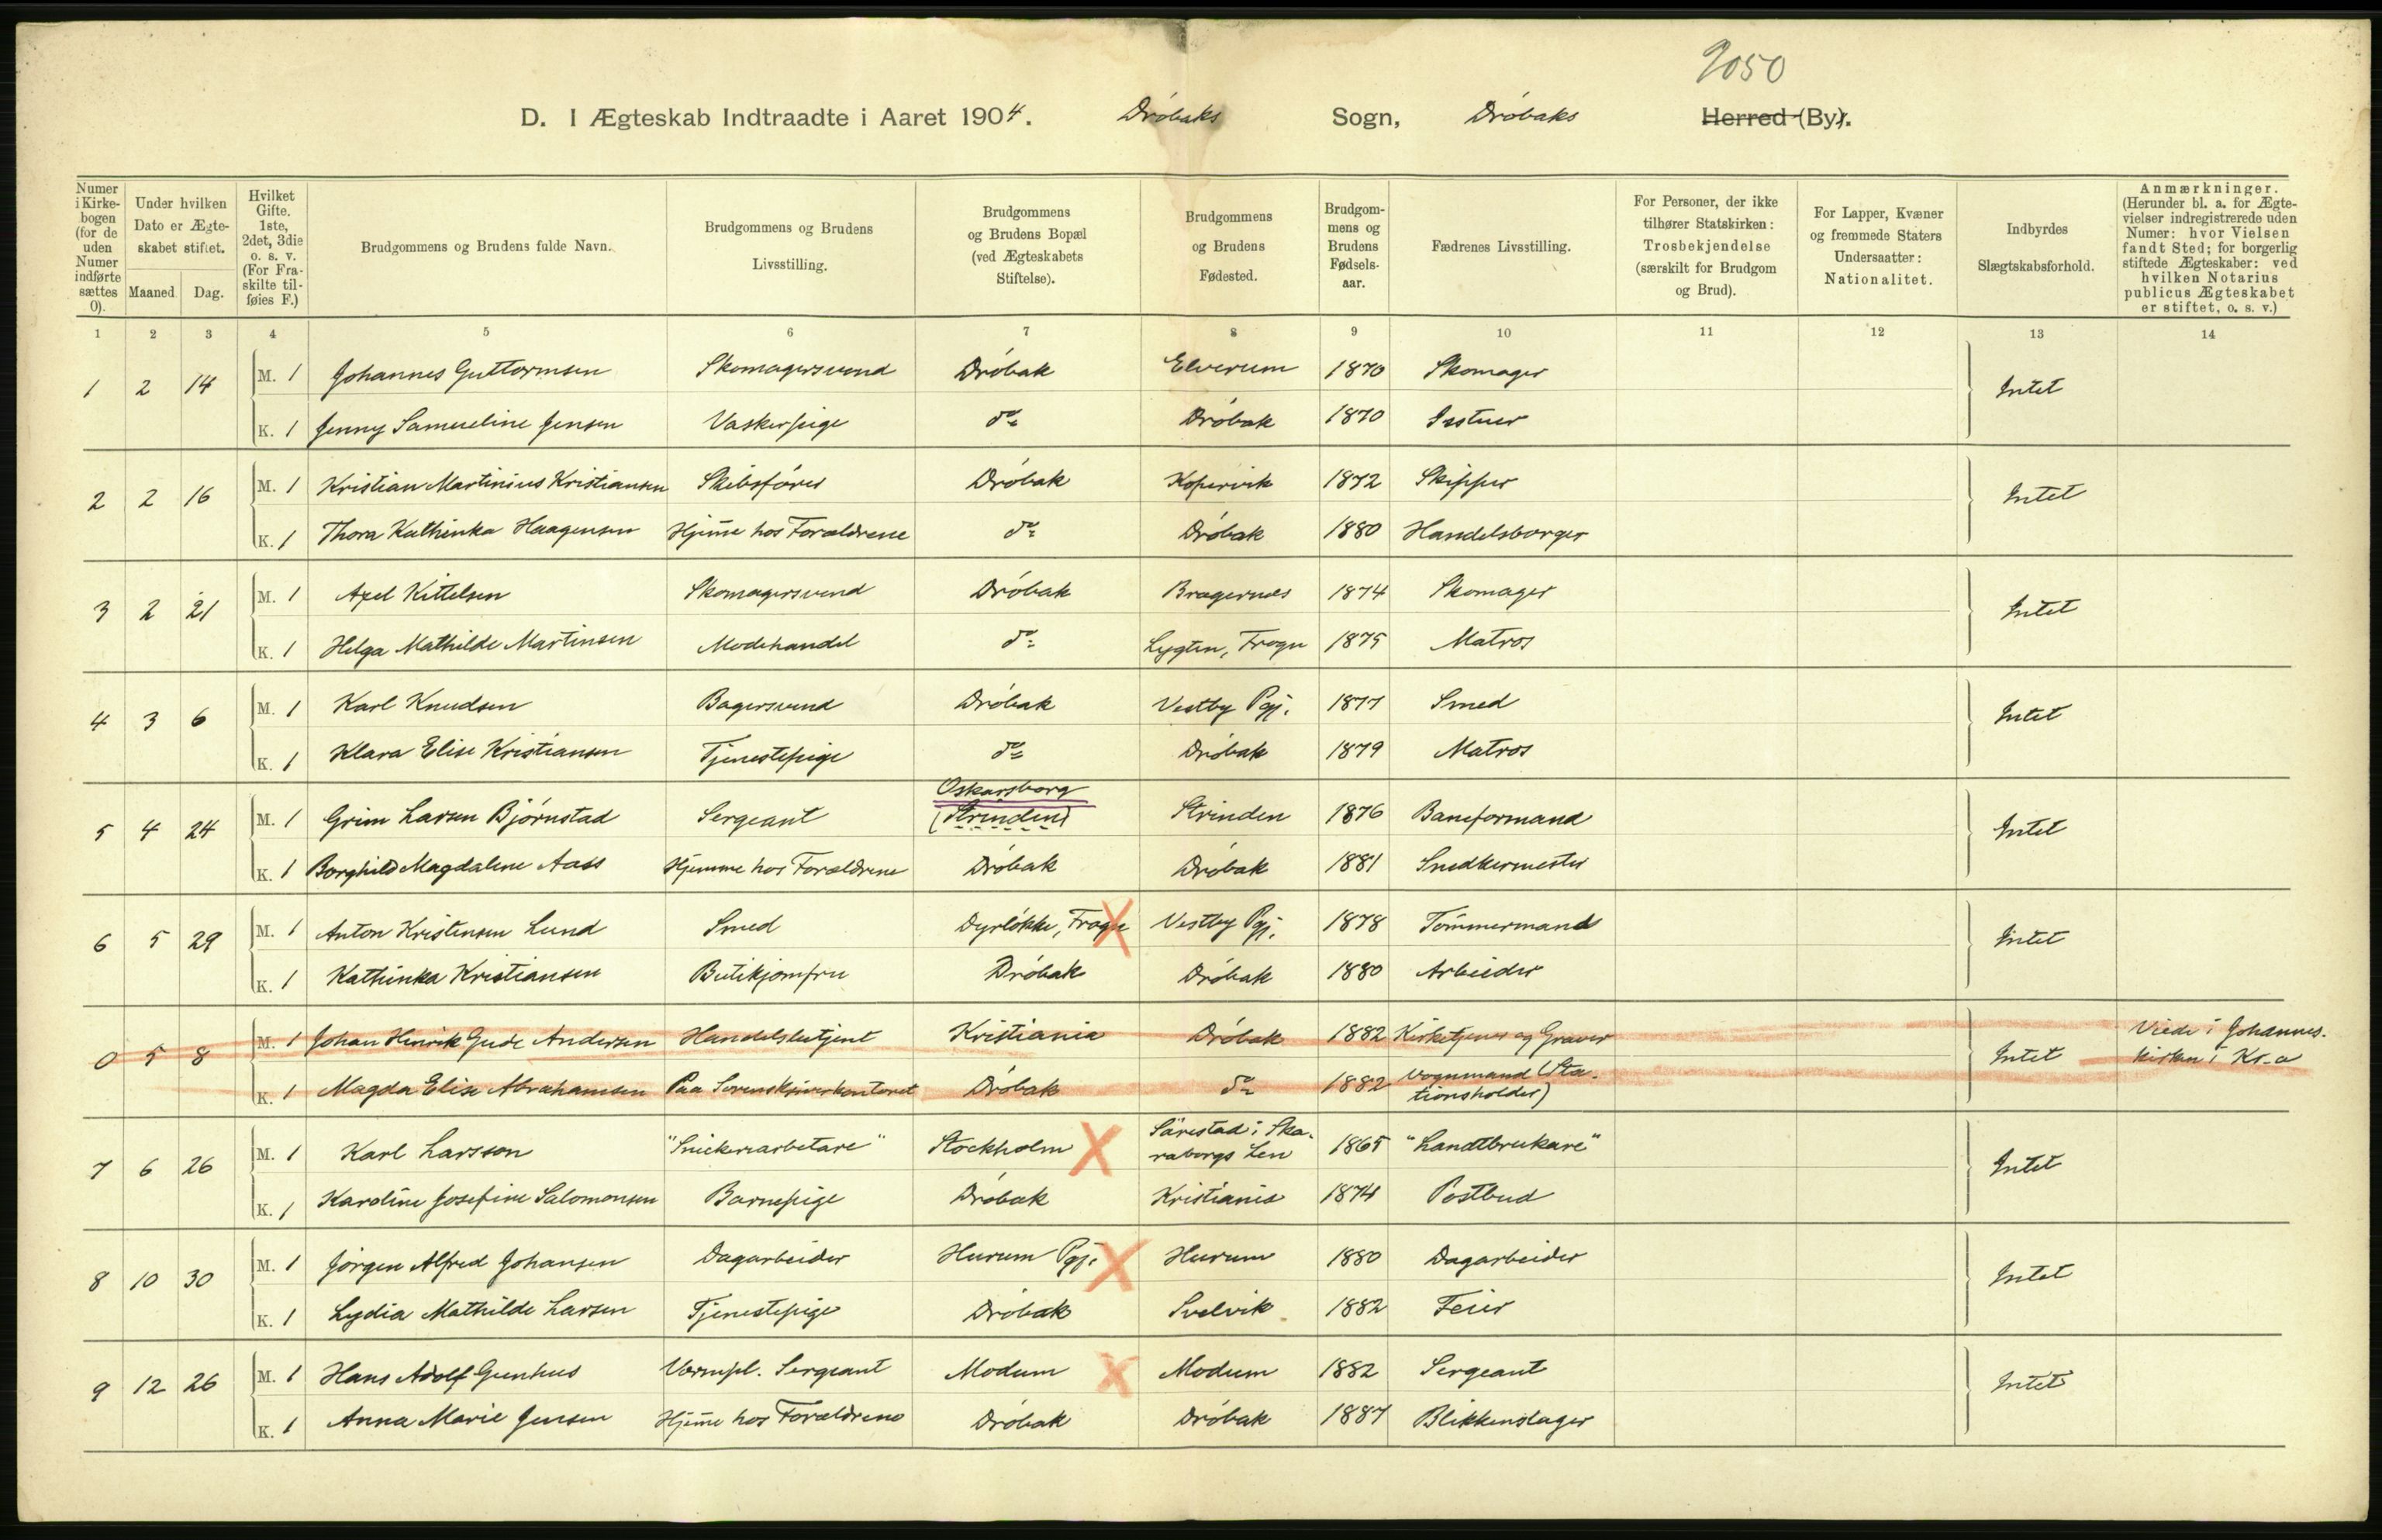 2050
D. I Ægteskab Indtraadte i Aaret 1904. Drøbaks Sogn, Drøbaks Herred (By).
Numer i Kirkebogen (for de uden Numer indførte sættes 0).
Under hvilken Dato er Ægteskabet stiftet. Maaned. Dag.
Hvilket Gifte. 1ste, 2det, 3die o. s. v. (For Fraskilte tilføies F.)
Brudgommens og Brudens fulde Navn.
Brudgommens og Brudens Livsstilling.
Brudgommens og Brudens Bopæl (ved Ægteskabets Stiftelse).
Brudgommens og Brudens Fødested.
Brudgommens og Brudens Fødselsaar.
Fædrenes Livsstilling.
For Personer, der ikke tilhører Statskirken: Trosbekjendelse (særskilt for Brudgom og Brud).
For Lapper, Kvæner og fremmede Staters Undersaatter: Nationalitet.
Indbyrdes Slægtskabsforhold.
Anmærkninger. (Herunder bl. a. for Ægtevielser indregistrerede uden Numer: hvor Vielsen fandt Sted; for borgerlig stiftede Ægteskaber: ved hvilken Notarius publicus Ægteskabet er stiftet, o. s. v.)
1 2 3 4 5 6 7 8 9 10 11 12 13 14
1 2 14 M. 1 Johannes Guttormsen Skomagersvend Drøbak Elverum 1870 Skomager Intet
K. 1 Jenny Samueline Jensen Vaskerpige do Drøbak 1870 Isstuer
2 2 16 M. 1 Kristian Martinius Kristiansen Skibsfører Drøbak Kopervik 1872 Skipper Intet
K. 1 Thora Kathinka Haagensen Hjem̅e hos Forældrene do Drøbak 1880 Handelsborger
3 2 21 M. 1 Axel Kittelsen Skomagersvend Drøbak Bragernæs 1874 Skomager Intet
K. 1 Helga Mathilde Martinsen Modehandel do Lygten, Frogn 1875 Matros
4 3 6 M. 1 Karl Knudsen Bagersvend Drøbak Vestby Pgj. 1877 Smed Intet
K. 1 Klara Elise Kristiansen Tjenestepige do Drøbak 1879 Matros
5 4 24 M. 1 Grim Larsen Bjørnstad Sergeant Oskarsborg (Strinden) Strinden 1876 Baneformand Intet
K. 1 Borghild Magdalene Aass Hjemme hos Forældrene Drøbak Drøbak 1881 Snedkermester
6 5 29 M. 1 Anton Kristensen Lund Smed Dyrløkke, Frogn Vestby Pgj. 1878 Tømmermand Intet
K. 1 Kathinka Kristiansen Butikjomfru Drøbak Drøbak 1880 Arbeider
0 5 8 M. 1 Johan Henrik Gude Andersen Handelsbetjent Kristiania Drøbak 1882 Kirketjener og Graver Intet Viede i Johannes-
kirken i Kr.a
K. 1 Magda Elise Abrahamsen Paa Sorenskriverkontoret Drøbak do 1882 Vognmand (Sta-
tionsholder)
7 6 26 M. 1 Karl Larsson "Snickeriarbetare" Stockholm Särestad i Ska-
raborgs Len 1865 "Landtbrukare" Intet
K. 1 Karoline Josefine Salomonsen Barnepige Drøbak Kristiania 1874 Postbud
8 10 30 M. 1 Jørgen Alfred Johansen Dagarbeider Hurum Pgj. Hurum 1880 Dagarbeider Intet
K. 1 Lydia Mathilde Larsen Tjenestepige Drøbak Svelvik 1882 Feier
9 12 26 M. 1 Hans Adolf Gunhus Vernepl. Sergeant Modum Modum 1882 Sergeant Intet
K. 1 Anna Marie Jensen Hjem̅e hos Forældrene Drøbak Drøbak 1887 Blikkenslager